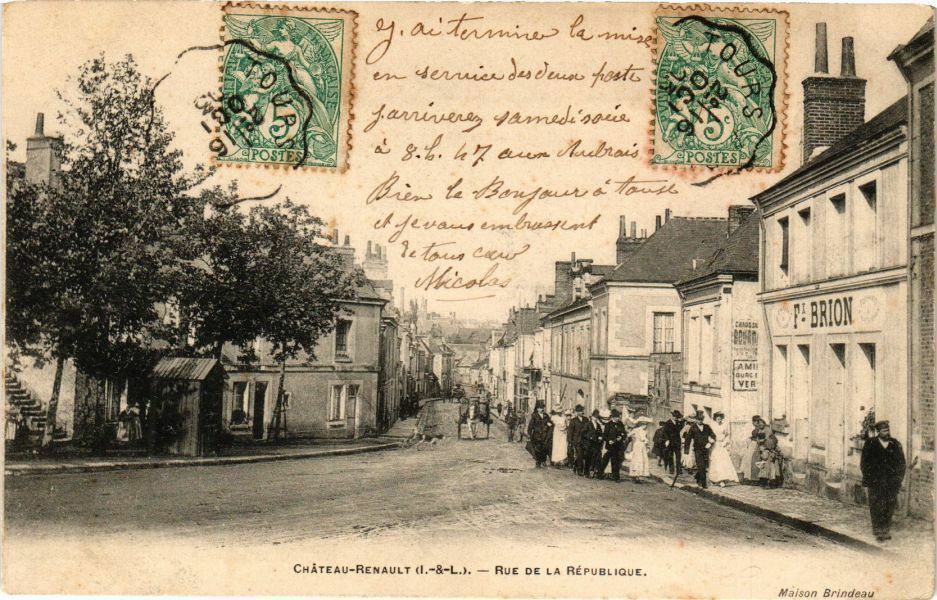 J'ai terminé la mise
en service des deux poste
j'arriverez samedi soir
à 8.h. 47 aux Aubrais
Bien le Bonjour à tous
et je vous embrassent
de tous cœur
Nicolas
TOURS
5
POSTES
TOURS
5
POSTES
F. BRION
AMI
VER
CHÂTEAU-RENAULT (I.-&-L.). — RUE DE LA RÉPUBLIQUE.
Maison Brindeau